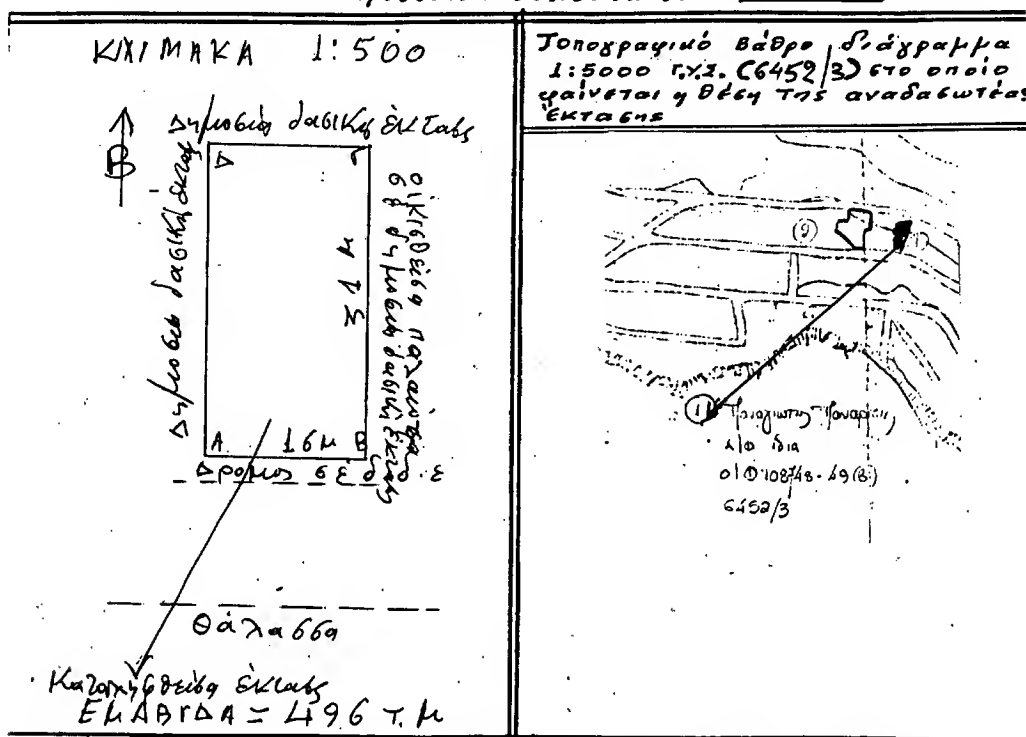 ΚΛΙΜΑΚΑ 1:500
Β
Δημοσία δασική έκταση
Δημοσία δασική έκταση
Δ
Γ
31 μ
οικισθείσα παλαιότερα
σε δημοσία δασική έκταση
Α 16 μ Β
Δρόμος σε
Θάλασσα
Κατα έκταση
ΕΜΑΒΓΔΑ = 496 τ.μ
Τοπογραφικό Βάθρο διάγραμμα
1:5000 Γ.Υ.Σ. (6452/3) στο οποίο
φαίνεται η θέση της αναδασωτέας
Έκτασης
1
Παναγιώτης
Α/Φ ίδια
Ο/Φ 108748-49 (Β)
6452/3